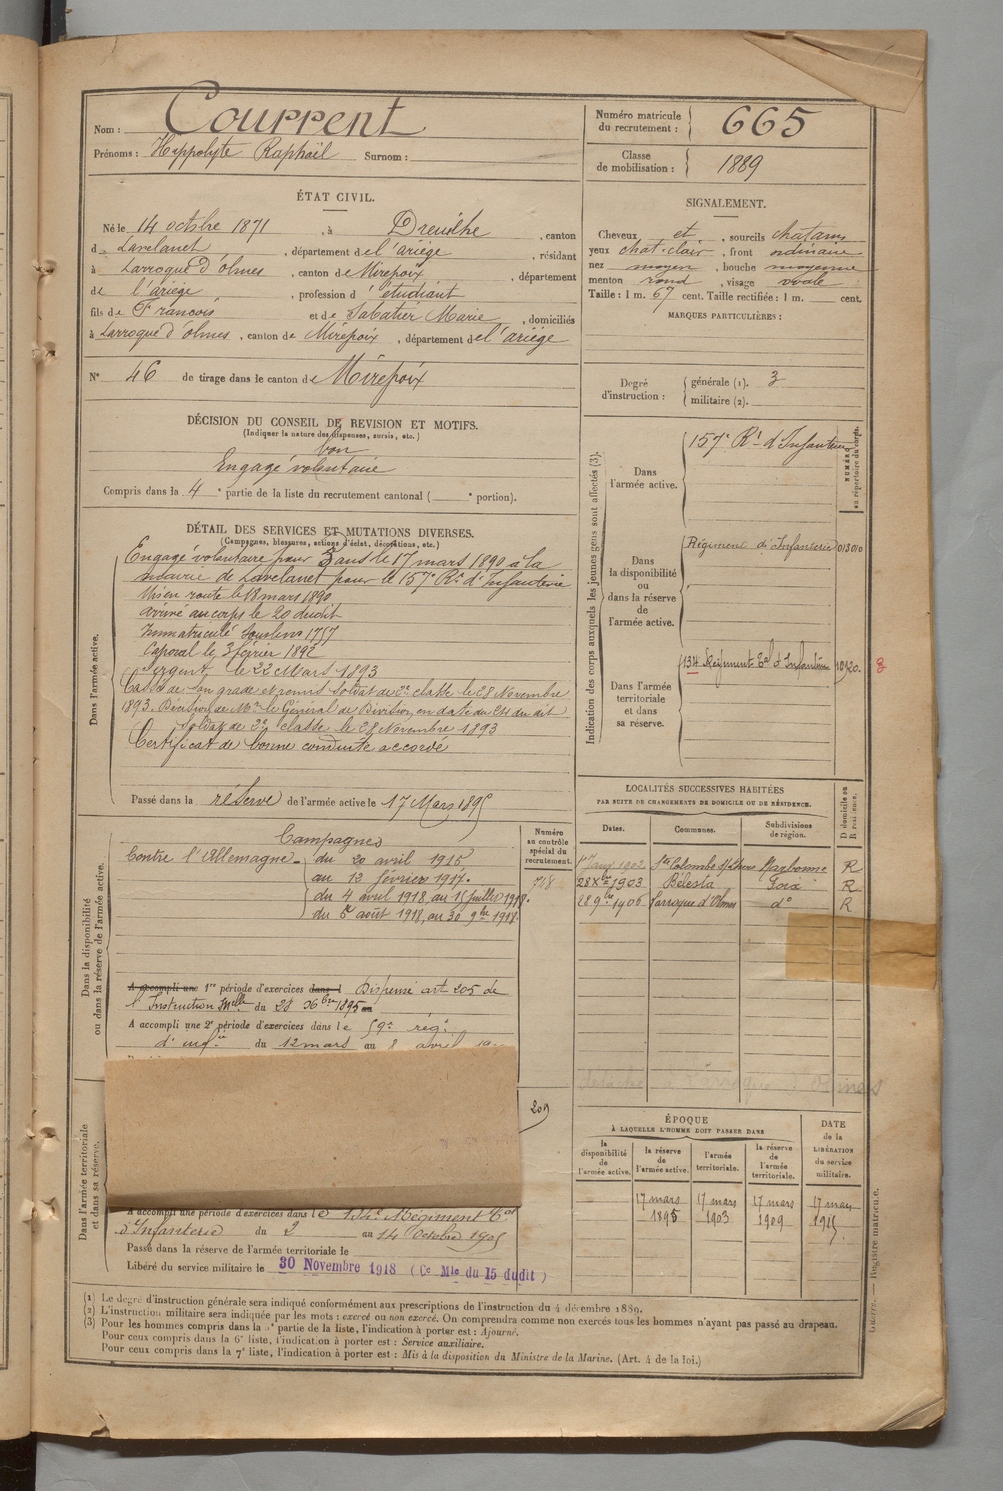 Nom : Courrent
Prénoms : Hippolyte Raphaël Surnom :
Numéro matricule du recrutement : 665
Classe de mobilisation : 1889
ÉTAT CIVIL.
Né le 14 octobre 1871, à Dreuilhe, canton
de Lavelanet, département de l'ariège, résidant
à Larroque d'olmes, canton de Mirepoix, département
de l'ariège, profession d'étudiant
fils de Francois et de Sabatier Marie, domiciliés
à Larroque d'olmes, canton de Mirepoix, département de l'ariège
N° 46 de tirage dans le canton de Mirepoix
SIGNALEMENT.
Cheveux et, sourcils chatains
yeux chat-clair, front ordinaire
nez moyen, bouche moyenne
menton rond, visage ovale
Taille : 1 m. 67 cent. Taille rectifiée : 1 m. cent.
MARQUES PARTICULIÈRES :
Degré d'instruction : générale (1). 3
militaire (2).
DÉCISION DU CONSEIL DE REVISION ET MOTIFS.
(Indiquer la nature des dispenses, sursis, etc.)
bon
Engagé volontaire
Compris dans la 4e partie de la liste du recrutement cantonal ( e portion).
DÉTAIL DES SERVICES ET MUTATIONS DIVERSES.
(Campagnes, blessures, actions d'éclat, décorations, etc.)
Dans l'armée active.
Engagé volontaire pour 5 ans le 17 mars 1890 à la
mairie de Lavelanet pour le 157e Rt d'Infanterie
Mis en route le 18 mars 1890
arrivé au corps le 20 dudit
Immatriculé sous le no 1757
Caporal le 3 février 1892
Sergent le 22 Mars 1893
Cassé de son grade et remis Soldat de 2e classe le 28 Novembre
1893. Décision de Mr le Général de Division en date du 24 du dit
Soldat de 2e classe le 28 Novembre 1893
Certificat de bonne conduite accordé
Passé dans la réserve de l'armée active le 17 Mars 1895
Dans la disponibilité ou dans la réserve de l'armée active.
Campagnes
Contre l'Allemagne du 20 avril 1915
au 12 février 1917.
du 4 avril 1918, au 15 Juillet 1918.
du 5 août 1918, au 30 9bre 1918
Numéro au contrôle spécial du recrutement.
718
A accompli une 1re période d'exercices dans l Dispensé art 205 de
l'Instruction Melle du 28 Xbre 1895 au
A accompli une 2e période d'exercices dans le 59e rég.
d'infie du 12 mars au 8 avril
209
Dans l'armée territoriale et dans sa réserve.
A accompli une période d'exercices dans le 134e Régiment Tal
d'Infanterie du 2 au 14 Octobre 1905
Passé dans la réserve de l'armée territoriale le
Libéré du service militaire le 30 Novembre 1918 (Ce Mle du 15 dudit)
Indication des corps auxquels les jeunes gens sont affectés (3).
Dans l'armée active.
157e Rt d'Infanterie
NUMÉRO au répertoire du corps.
Dans la disponibilité ou dans la réserve de l'armée active.
Régiment d'Infanterie 013010
Dans l'armée territoriale et dans sa réserve.
134 Régiment Tal d'Infanterie
LOCALITÉS SUCCESSIVES HABITÉES
PAR SUITE DE CHANGEMENTS DE DOMICILE OU DE RÉSIDENCE.
Dates. Communes. Subdivisions de région. D domicile ou R résidence.
1902 Ste Colombe s/ l'hers Narbonne R
28 Xbre 1903 Bélesta Foix R
28 9bre 1906 Larroque d'Olmes do R
ÉPOQUE
À LAQUELLE L'HOMME DOIT PASSER DANS
la disponibilité de l'armée active. la réserve de l'armée active. l'armée territoriale. la réserve de l'armée territoriale.
DATE de la LIBÉRATION du service militaire.
17 mars 1895 17 mars 1903 17 mars 1909 17 mars 1915.
(1) Le degré d'instruction générale sera indiqué conformément aux prescriptions de l'instruction du 4 décembre 1889.
(2) L'instruction militaire sera indiquée par les mots : exercé ou non exercé. On comprendra comme non exercés tous les hommes n'ayant pas passé au drapeau.
(3) Pour les hommes compris dans la 5e partie de la liste, l'indication à porter est : Ajourné.
Pour ceux compris dans la 6e liste, l'indication à porter est : Service auxiliaire.
Pour ceux compris dans la 7e liste, l'indication à porter est : Mis à la disposition du Ministre de la Marine. (Art. 4 de la loi.)
Guerre. — Registre matricule.